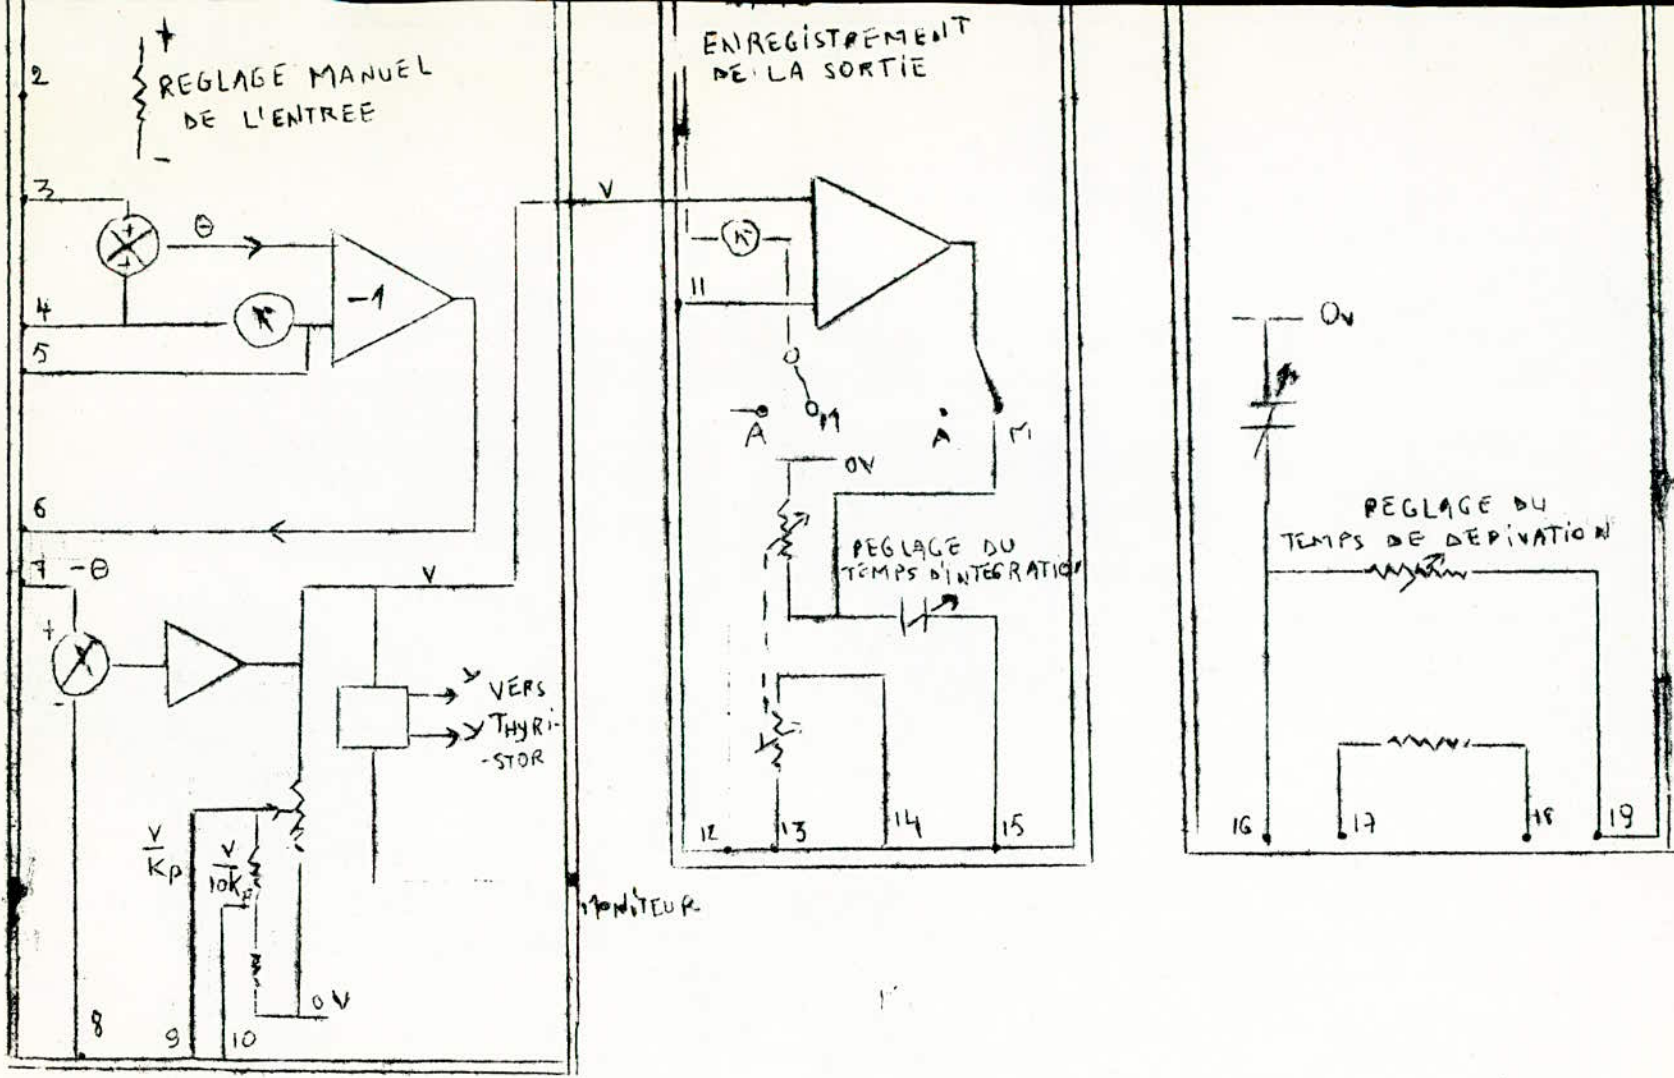 +
REGLAGE MANUEL
DE L'ENTREE
-
2
3
+
-
θ
-1
4
5
6
7
-θ
V
+
-
Y VERS
Y THYRI-
-STOR
V
Kp
V
10K
0V
8
9
10
MONITEUR
ENREGISTREMENT
DE LA SORTIE
V
11
A
M
A
M
0V
REGLAGE DU
TEMPS D'INTEGRATION
12
13
14
15
0v
REGLAGE DU
TEMPS DE DERIVATION
16
17
18
19